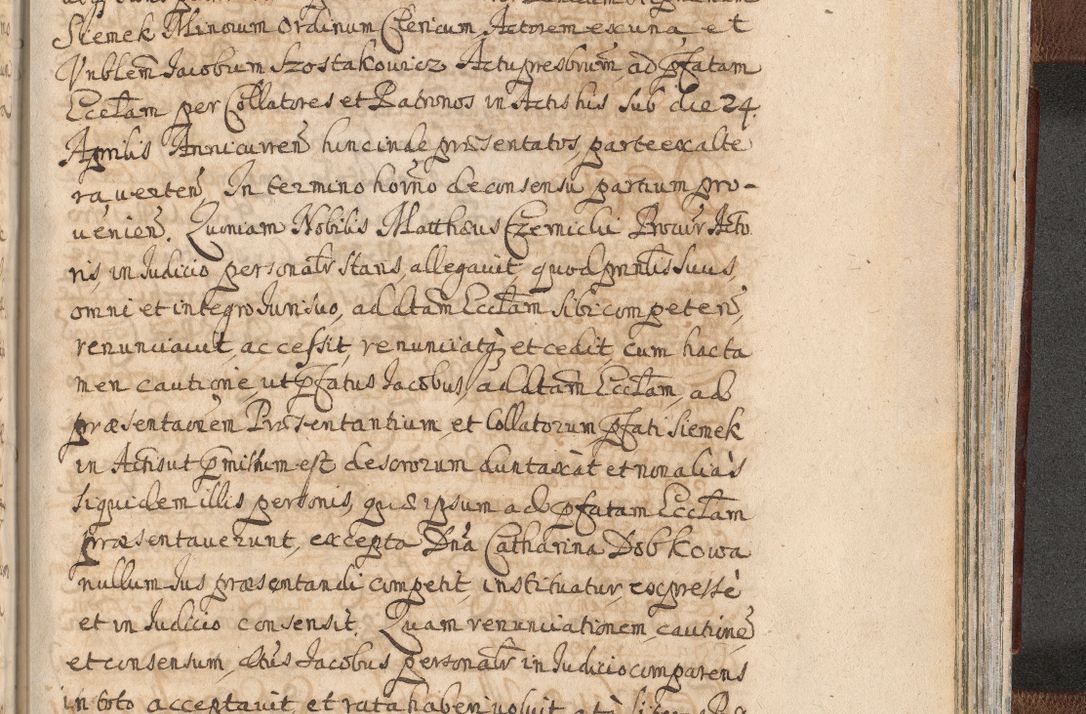 Siemek Minorum Ordinum Clericum Actorem ex una et
Vnblem̃ Jacobum Szostakowicz Actu presbrum̃ ad pfatam
Ecclãm per Collatores et Patronos in Actis his sub die 24.
Aprilis Anni curren̄ hincinde præsentatos, parte ex alte
ra verten̄, In termino hor̃no de consensu partium pro-
uenien̄. Quoniam Nobilis Matthæus Czernicki Procur̃ Acto
ris, in Judicio personal̃r stans, allegauit, quod pr̃inlis suus,
omni et integro Juri suo, ad d̃tam Ecclãm sibi competen̄,
renunciauit, accessit, renunciatq̃ et cedit, cum hac ta
men cautione, ut pfatus Jacobus, ad d̃tam Ecclãm, ad
præsentaõnem Præsentantium et Collatorum pfati Siemek
in Actis ut p̃missum est descrorum duntaxat et non aliàs
siquidem illis personis, quæ ipsum ad pfatam Ecclãm
præsentauerunt, excepta Dñā Catharina Dobkowa
nullum Jus præsentandi competit, instituatur, expressè
et in Judicio consensit. Quam renunciationem, cautionē
et consensum, d̃tus Jacobus personal̃r in Judicio comparens
in toto acceptauit et rata haberi voluit